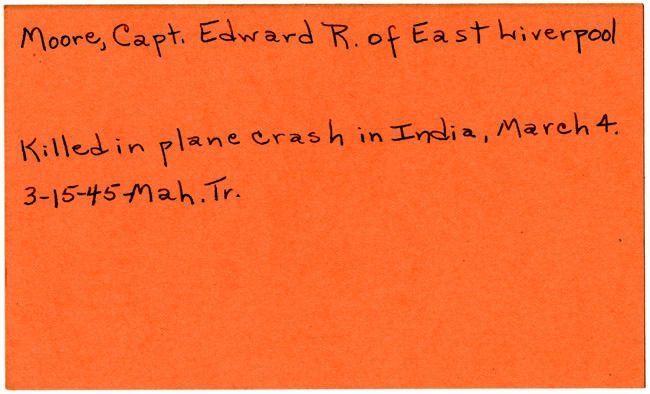 Moore, Capt. Edward R. of East Liverpool
Killed in plane crash in India, March 4.
3-15-45-Mah. Tr.